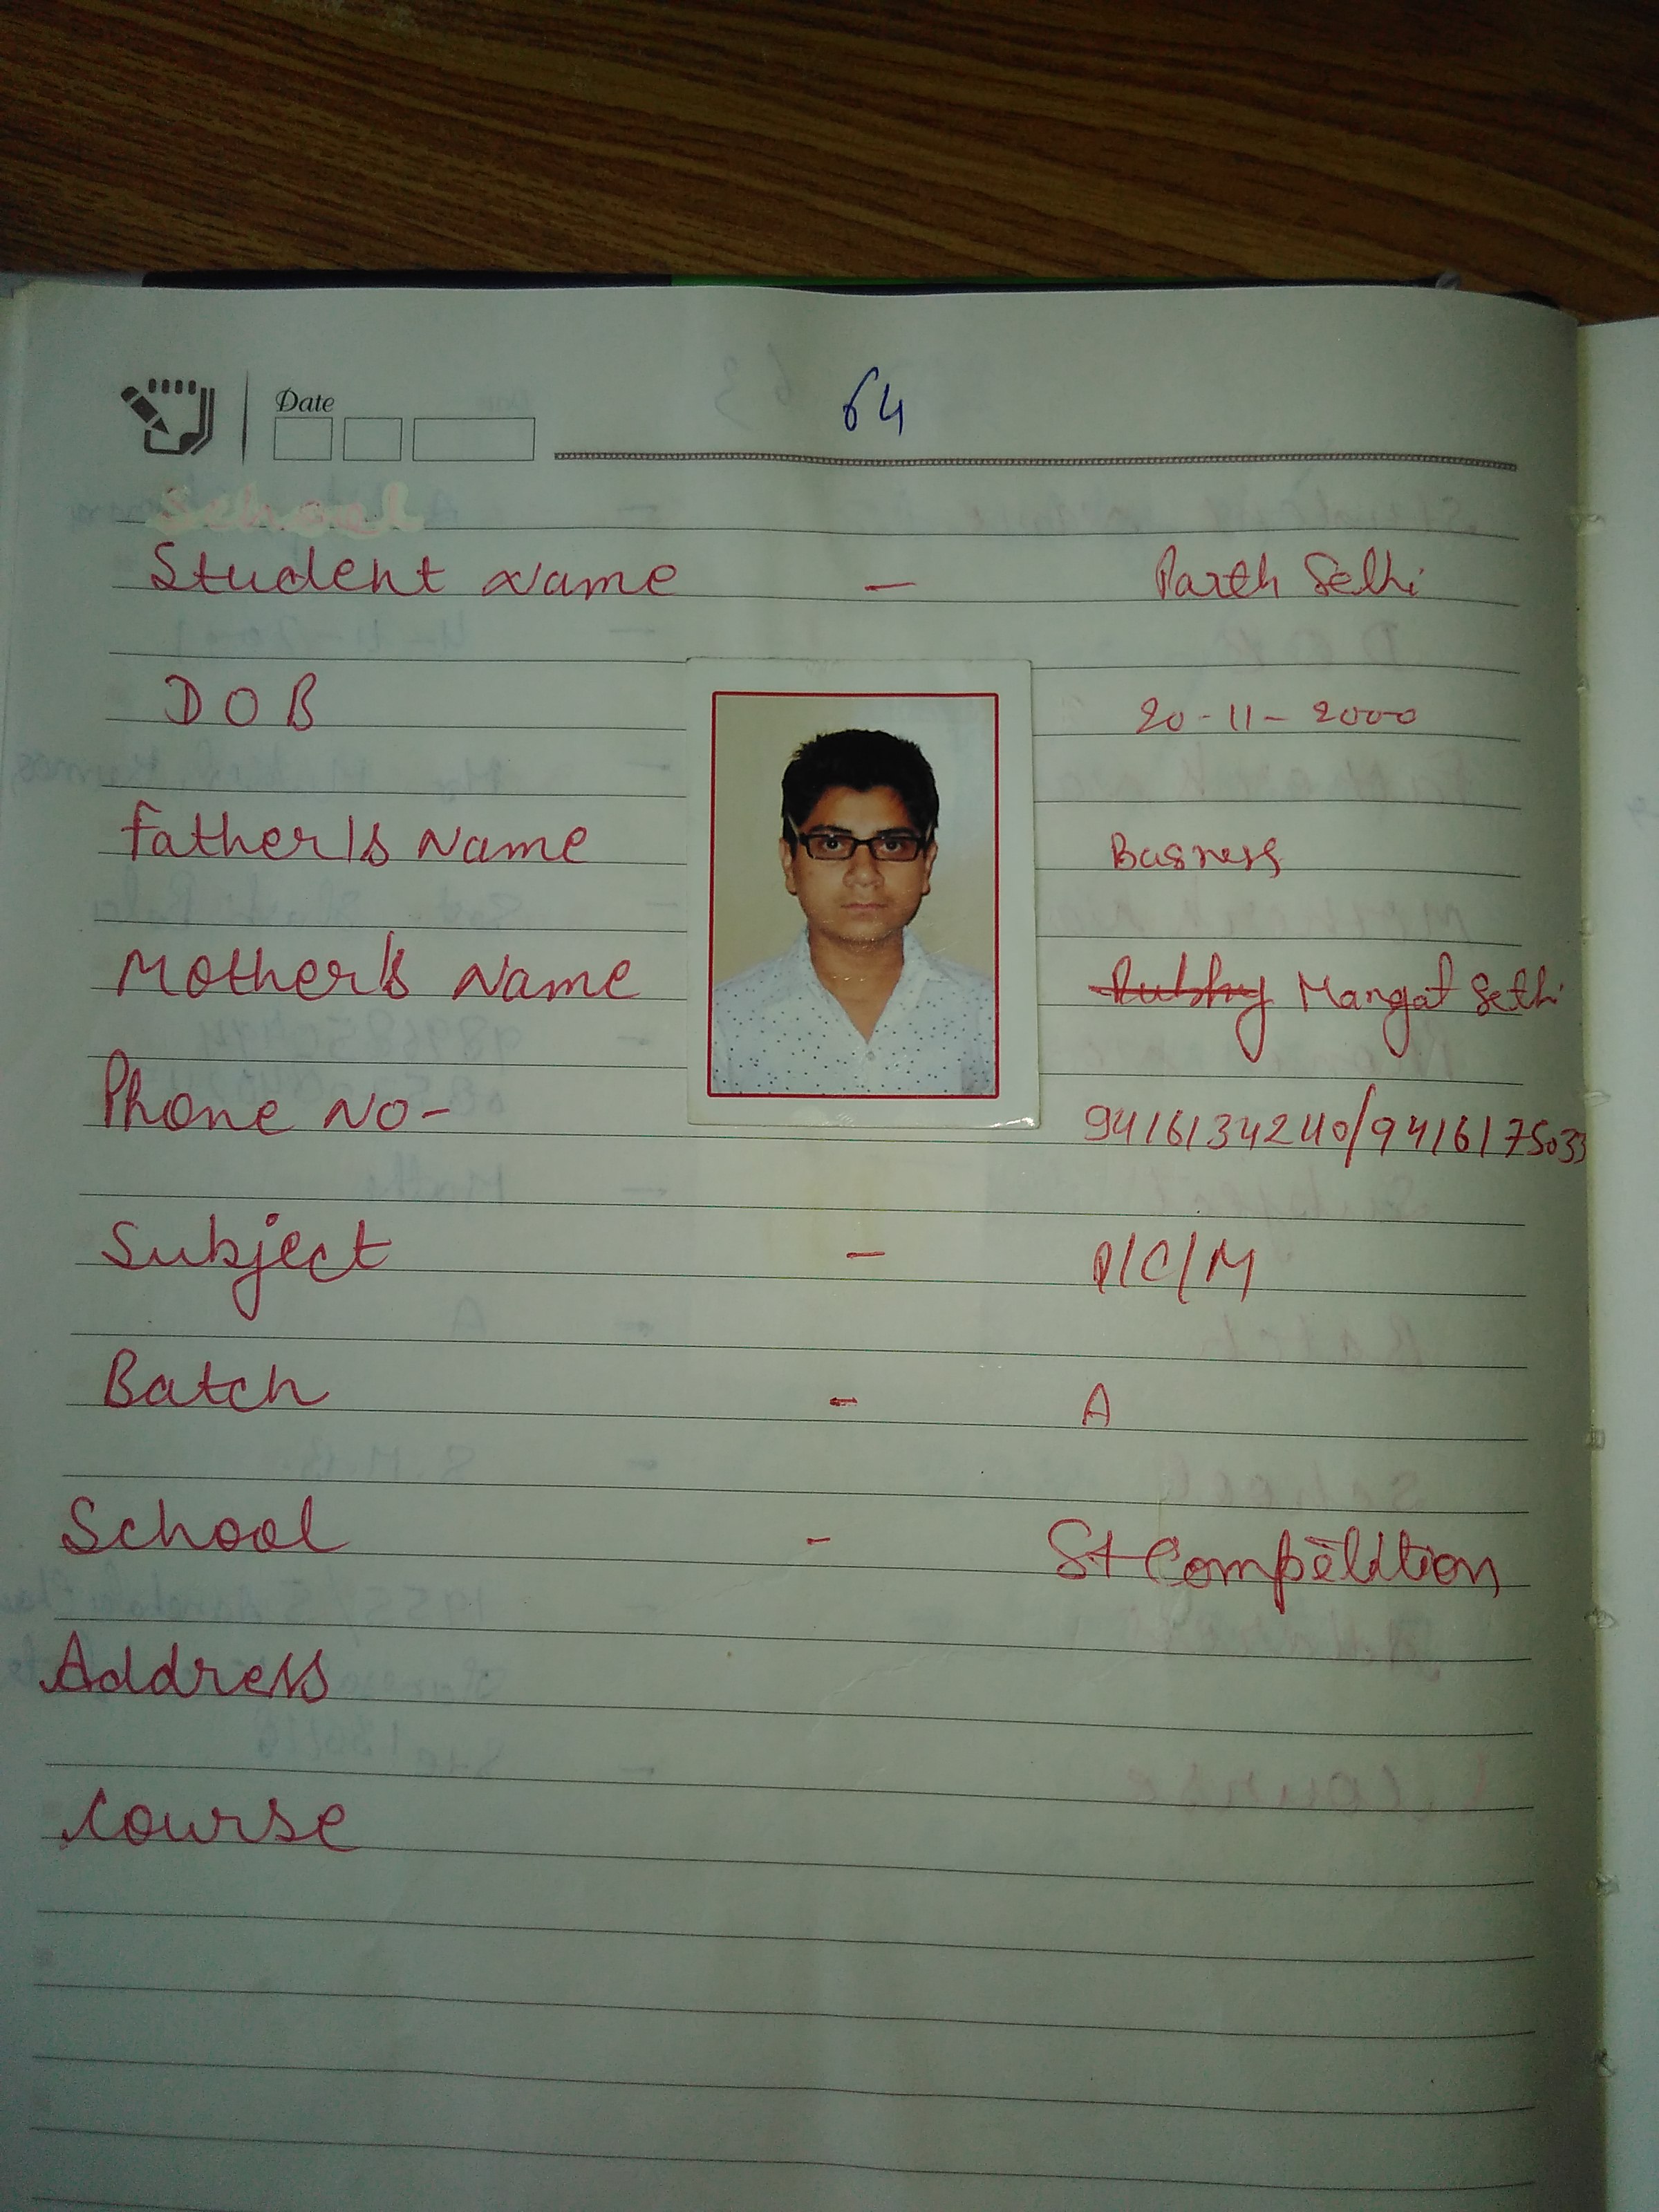 Date
64
School
Student Name - Parth Sethi
DOB 20-11-2000
Father's Name Busness
Mother's Name Mangat Sethi
Phone No- 9416134240/9416175033
Subject - P/C/M
Batch - A
School - St Compëtition
Address
Course